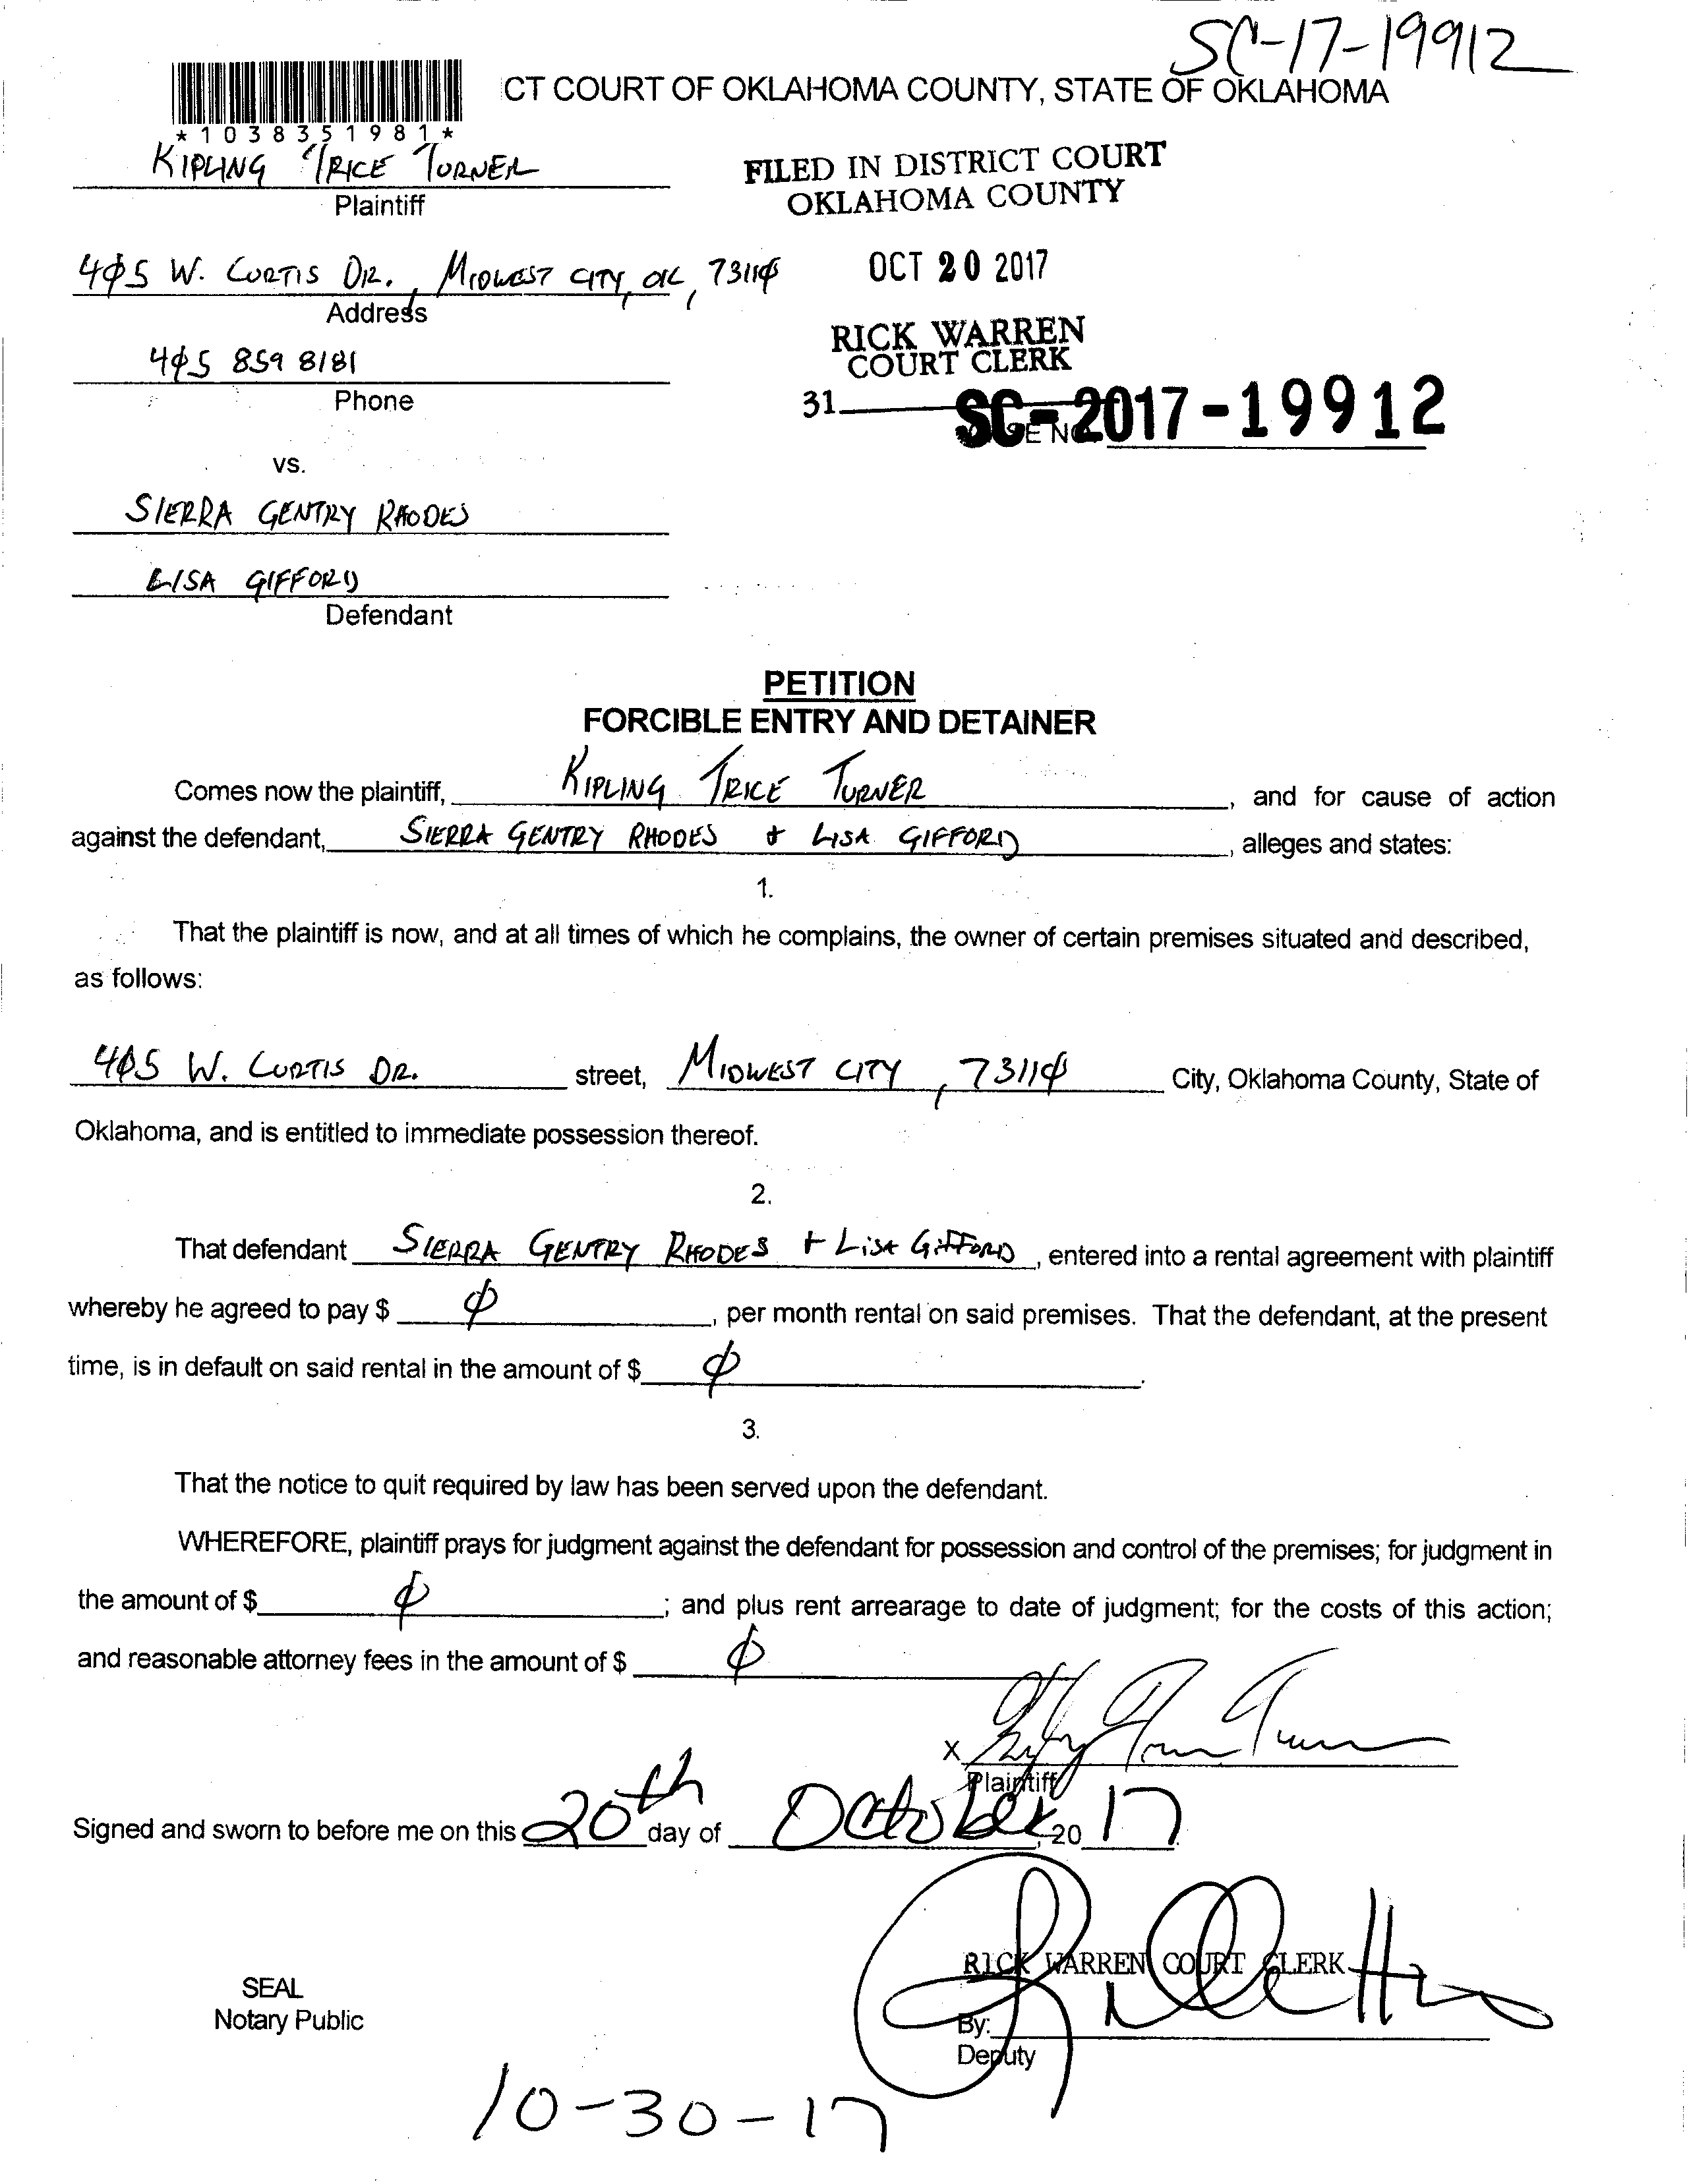 SC-17-19912
CT COURT OF OKLAHOMA COUNTY, STATE OF OKLAHOMA
*1038351981*
KIPLING TRICE TURNER
Plaintiff
FILED IN DISTRICT COURT
OKLAHOMA COUNTY
405 W. CURTIS DR., MIDWEST CITY, OK, 73110
Address
OCT 20 2017
RICK WARREN
COURT CLERK
405 859 8181
Phone
31
SC-2017-19912
vs.
SIERRA GENTRY RHODES
LISA GIFFORD
Defendant
PETITION
FORCIBLE ENTRY AND DETAINER
Comes now the plaintiff, KIPLING TRICE TURNER, and for cause of action
against the defendant, SIERRA GENTRY RHODES + LISA GIFFORD, alleges and states:
1.
That the plaintiff is now, and at all times of which he complains, the owner of certain premises situated and described,
as follows:
405 W. CURTIS DR. street, MIDWEST CITY, 73110 City, Oklahoma County, State of
Oklahoma, and is entitled to immediate possession thereof.
2.
That defendant SIERRA GENTRY RHODES + LISA GIFFORD, entered into a rental agreement with plaintiff
whereby he agreed to pay $ 0, per month rental on said premises. That the defendant, at the present
time, is in default on said rental in the amount of $ 0.
3.
That the notice to quit required by law has been served upon the defendant.
WHEREFORE, plaintiff prays for judgment against the defendant for possession and control of the premises; for judgment in
the amount of $ 0; and plus rent arrearage to date of judgment; for the costs of this action;
and reasonable attorney fees in the amount of $ 0
X
Plaintiff
Signed and sworn to before me on this 20th day of October, 20 17.
RICK WARREN COURT CLERK
SEAL
Notary Public
By:
Deputy
10-30-17